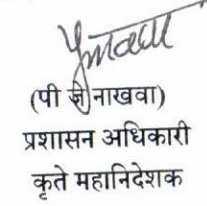 (पी जे नाखवा)
प्रशासन अधिकारी
कृते महानिदेशक